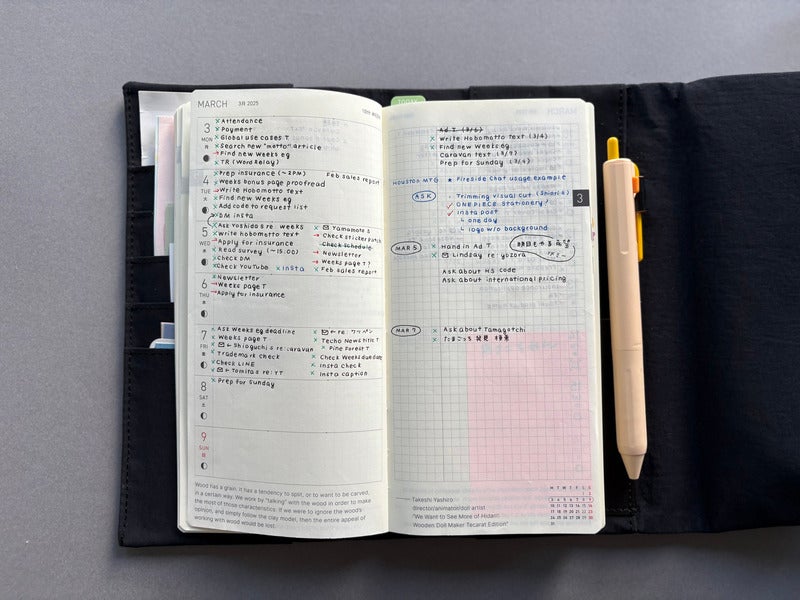 MARCH 3月 2025
3
MON
月
× Attendance
× Payment
× Global use cases T
× Search new "motto" article
→ Find new Weeks eg
× TR (Word Relay)
4
TUE
火
× Prep insurance (~2PM) Feb sales report
× Weeks bonus page proofread
→ Write Hobomotto Text
× Find new Weeks eg
× Add code to request list
DM insta
5
WED
水
× Ask Yoshida re: weeks
× Write hobomotto text
→ Apply for insurance
× Read survey (~15:00)
× Check DM
× Check YouTube × Insta
× Yamamoto S
→ Check sticker patch
Check Schedule
→ Newsletter
→ Weeks page T?
× Feb sales report
6
THU
木
× Newsletter
→ Weeks page T
→ Apply for insurance
7
FRI
金
× Ask Weeks eg deadline
× Weeks page T
× ← Shioguchi re: caravan
× Trademark check
× Check LINE
× ← Tomita re: YT
× ← re: ワッペン
× Techo News title T
× Pine Forest T
× Check Weeks due date
× Insta check
× Insta caption
8
SAT
土
× Prep for Sunday
9
SUN
日
Wood has a grain, it has a tendency to split, or to want to be carved,
in a certain way. We work by "talking" with the wood in order to make
the most of those characteristics. If we were to ignore the wood's
opinion, and simply follow the clay model, then the entire appeal of
working with wood would be lost.
TODAY
MARCH
Ad T (3/6)
× Write Hobomotto Text (3/4)
× Find new Weeks eg
Caravan text (3/7)
Prep for Sunday (3/4)
HOUSTON MTG ★ Fireside chat usage example
ASK
Trimming visual cut (Shiori&)
✓ ONE PIECE Stationery?
✓ Insta post
↳ one day
↳ logo w/o background
3
MAR 5
× Hand in Ad T
× Lindsay re: yozora
Ask about HS code
Ask about international pricing
MAR 7
× Ask about Tamagotchi
× たまごっち
Takeshi Yashiro
director/animator/doll artist
"We Want to See More of Hidari:
Wooden Doll Maker Tecarat Edition"
M T W T F S S
1 2
3 4 5 6 7 8 9
10 11 12 13 14 15 16
17 18 19 20 21 22 23
24 25 26 27 28 29 30
31